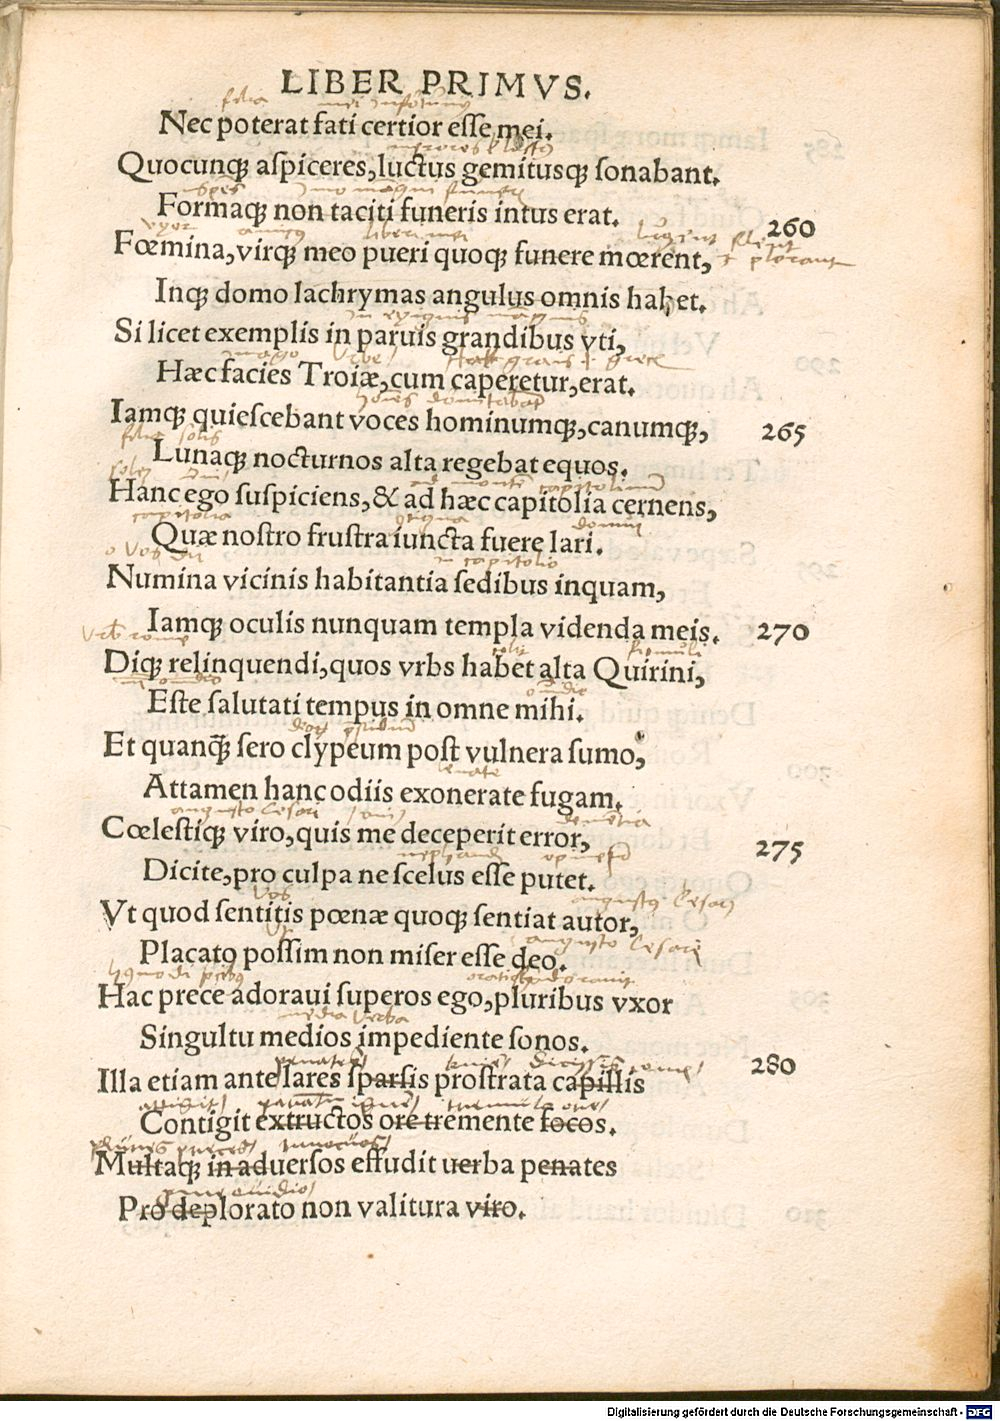 LIBER PRIMVS.
filia
Nec poterat fati certior eſſe mei.
Quocunq; aſpiceres, luctus gemitusq; ſonabant.
Formaq; non taciti funeris intus erat. 260
vxor amicus liberi mei lugent flent
Fœmina, virq; meo pueri quoq; funere mœrent, & plorant
Inq; domo lachrymas angulus omnis habet.
in exiguis magnis
Si licet exemplis in paruis grandibus vti,
imago
Hæc facies Troiæ, cum caperetur, erat.
Iamq; quieſcebant voces hominumq;, canumq;, 265
filia solis
Lunaq; nocturnos alta regebat equos.
ad montē capitolinū
Hanc ego ſuſpiciens, & ad hæc capitolia cernens,
capitolia
Quæ noſtro fruſtra iuncta fuere lari.
o vos dii in capitolio
Numina vicinis habitantia ſedibus inquam,
Iamq; oculis nunquam templa videnda meis. 270
Diq; relinquendi, quos vrbs habet alta Quirini,
Eſte ſalutati tempus in omne mihi.
Et quanq̃ ſero clypeum poſt vulnera ſumo,
Attamen hanc odiis exonerate fugam.
augusto Cesari
Cœleſtiq; viro, quis me deceperit error, 275
Dicite, pro culpa ne ſcelus eſſe putet.
vos augustus Cesar
Vt quod ſentitis pœnæ quoq; ſentiat autor,
augusto Cesari
Placato poſſim non miſer eſſe deo.
Hac prece adoraui ſuperos ego, pluribus vxor
media verba
Singultu medios impediente ſonos.
Illa etiam ante lares ſparſis proſtrata capillis 280
tremula ore
Contigit extructos ore tremente focos.
plures preces innocuos
Multaq; in aduerſos effudit uerba penates
Pro deplorato non valitura viro.
Digitalisierung gefördert durch die Deutsche Forschungsgemeinschaft - DFG